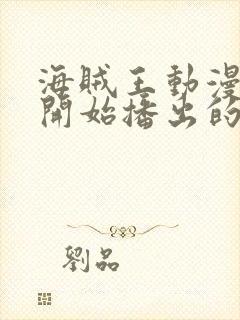 海賊王動漫
開始播出的
劉品